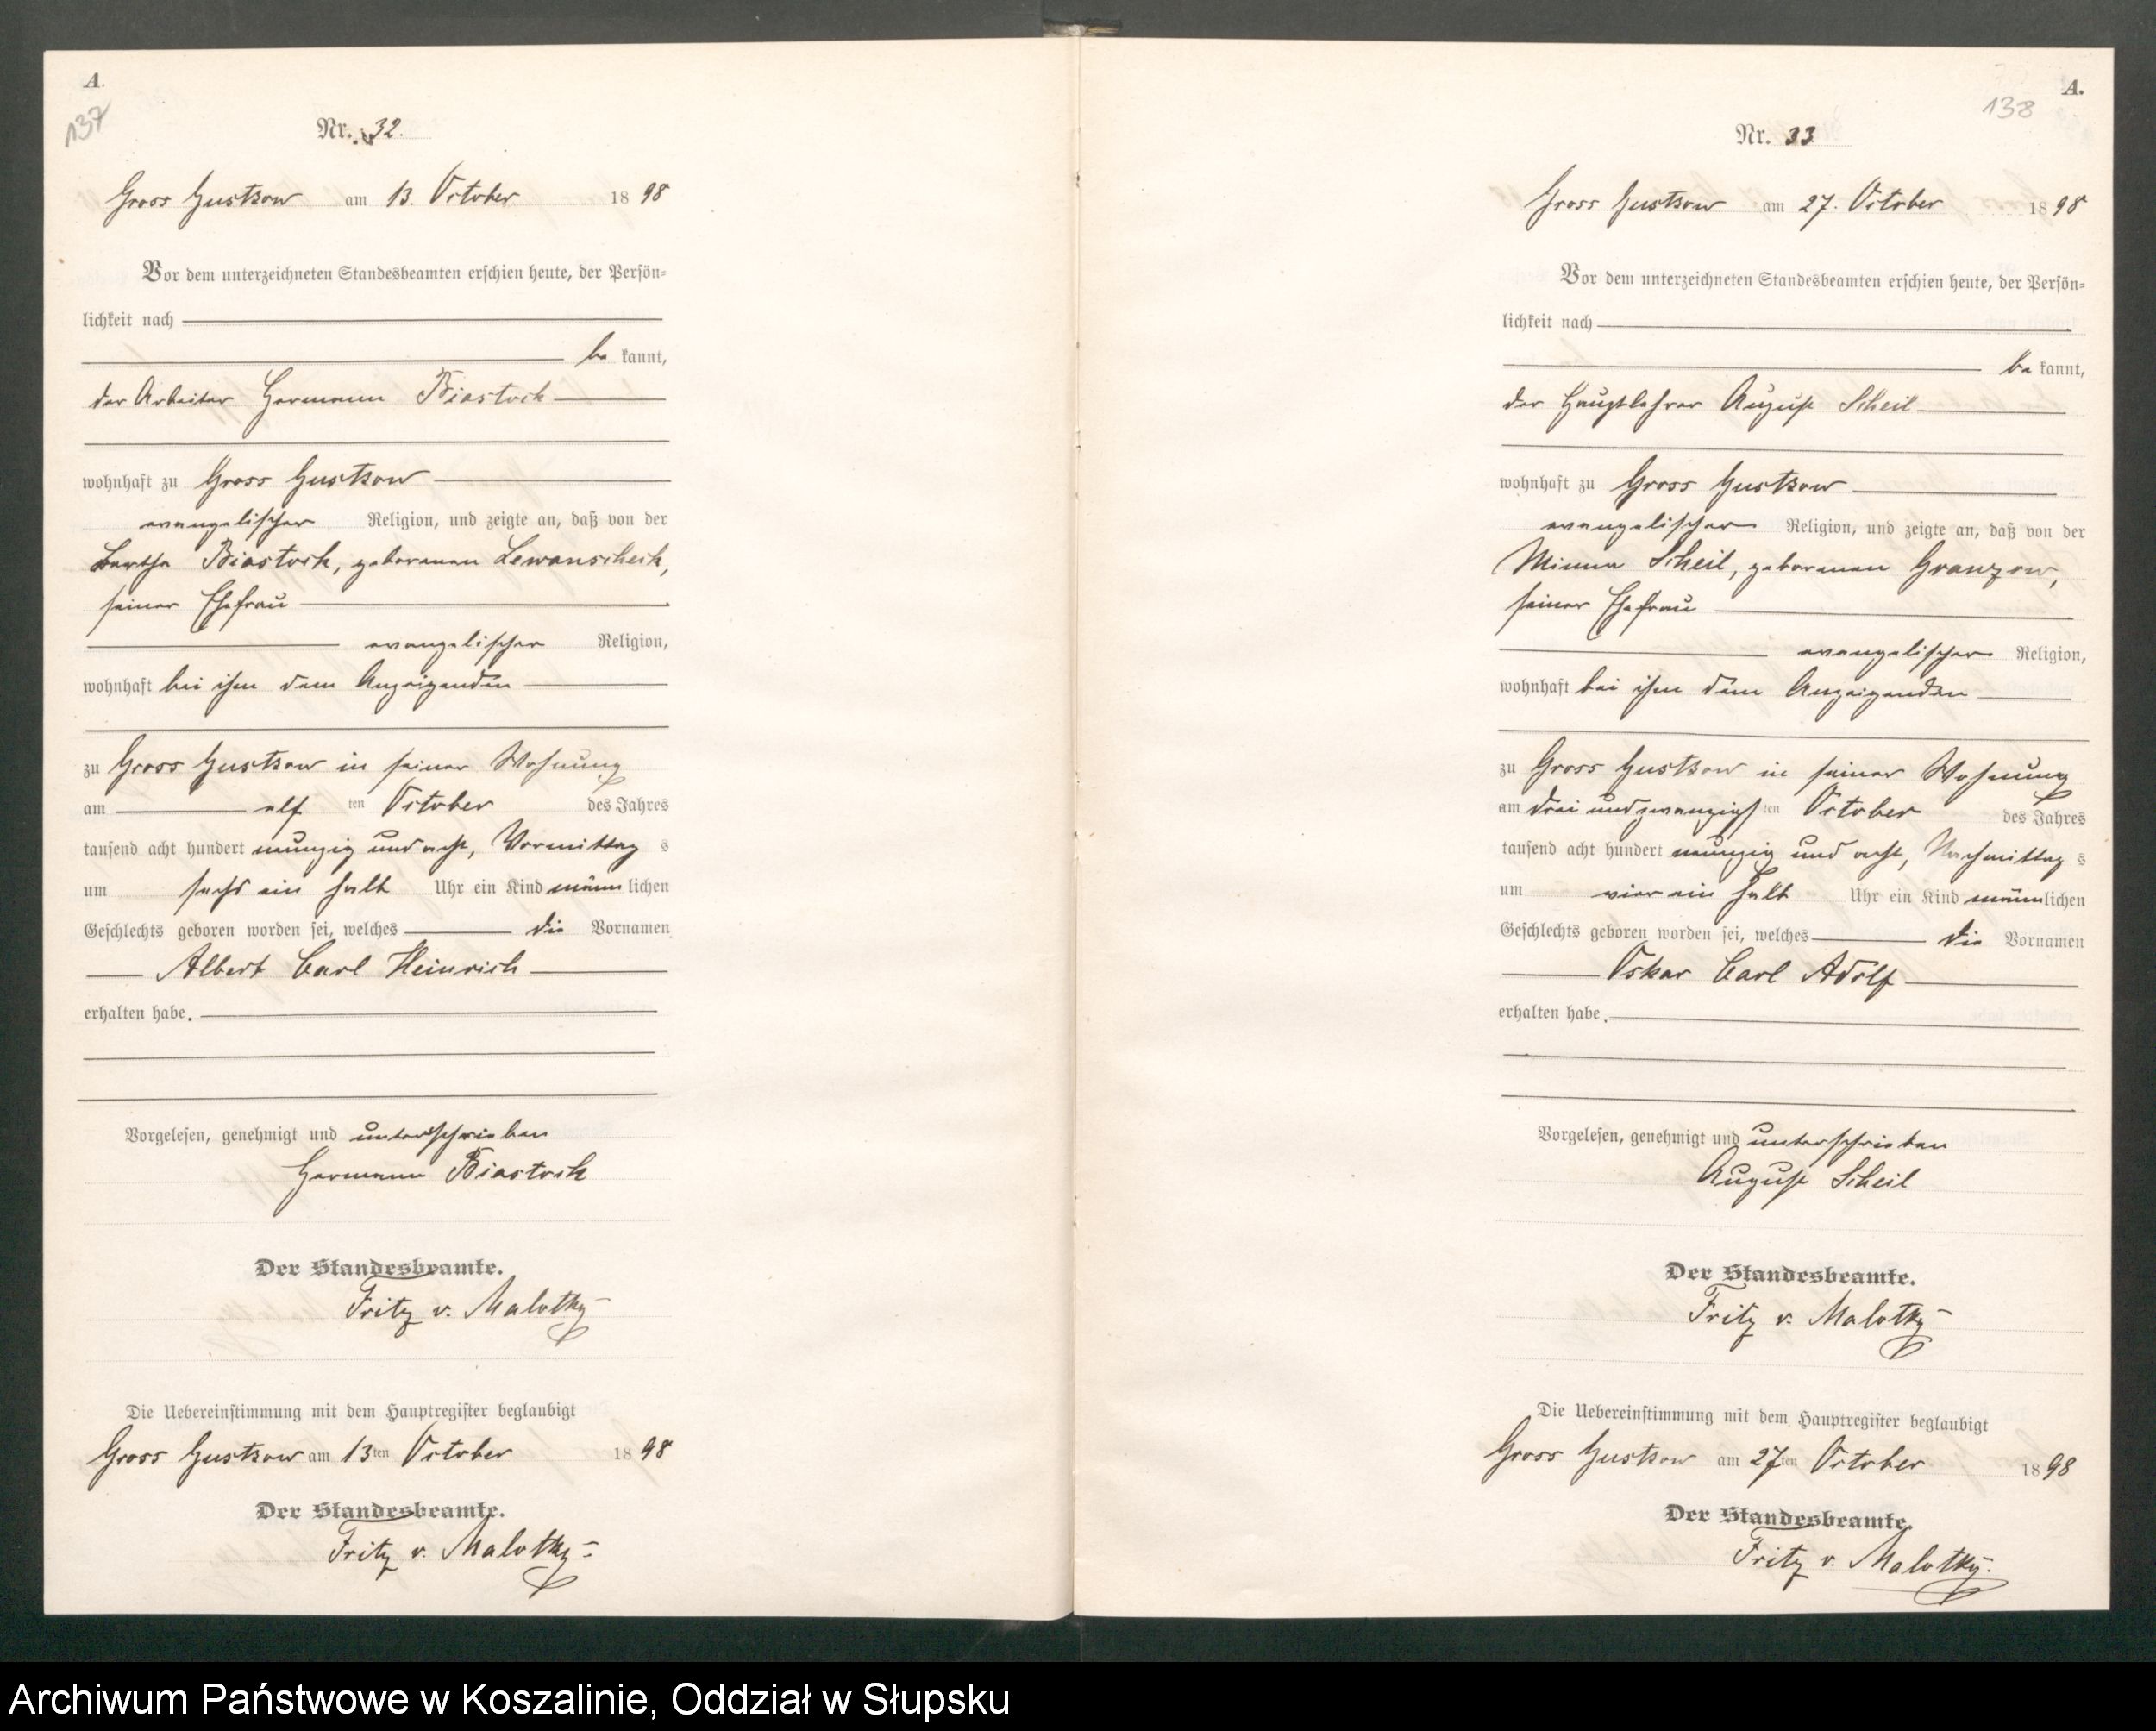 A.
137
Nr. 32.
Gross Gustkow am 13. October 1898
Vor dem unterzeichneten Standesbeamten erschien heute, der Persön-
lichkeit nach
be kannt,
der Arbeiter Hermann Biastoch
wohnhaft zu Gross Gustkow
evangelischer Religion, und zeigte an, daß von der
Bertha Biastoch, geborenen Lewanscheck,
seiner Ehefrau
evangelischer Religion,
wohnhaft bei ihm dem Anzeigenden
zu Gross Gustkow in seiner Wohnung
am elf ten October des Jahres
tausend acht hundert neunzig und acht, Vormittag s
um sechs ein halb Uhr ein Kind männlichen
Geschlechts geboren worden sei, welches die Vornamen
Albert Carl Heinrich
erhalten habe.
Vorgelesen, genehmigt und unterschrieben
Hermann Biastoch
Der Standesbeamte.
Fritz v. Malotky
Die Uebereinstimmung mit dem Hauptregister beglaubigt
Gross Gustkow am 13ten October 1898
Der Standesbeamte.
Fritz v. Malotky
A.
138
Nr. 33
Gross Gustkow am 27. October 1898
Vor dem unterzeichneten Standesbeamten erschien heute, der Persön-
lichkeit nach
be kannt,
der Hauptlehrer August Scheil
wohnhaft zu Gross Gustkow
evangelischer Religion, und zeigte an, daß von der
Minna Scheil, geborenen Granzow,
seiner Ehefrau
evangelischer Religion,
wohnhaft bei ihm dem Anzeigenden
zu Gross Gustkow in seiner Wohnung
am drei und zwanzigsten October des Jahres
tausend acht hundert neunzig und acht, Nachmittag s
um vier ein halb Uhr ein Kind männlichen
Geschlechts geboren worden sei, welches die Vornamen
Oskar Carl Adolf
erhalten habe.
Vorgelesen, genehmigt und unterschrieben
August Scheil
Der Standesbeamte.
Fritz v. Malotky
Die Uebereinstimmung mit dem Hauptregister beglaubigt
Gross Gustkow am 27ten October 1898
Der Standesbeamte.
Fritz v. Malotky.
Archiwum Państwowe w Koszalinie, Oddział w Słupsku